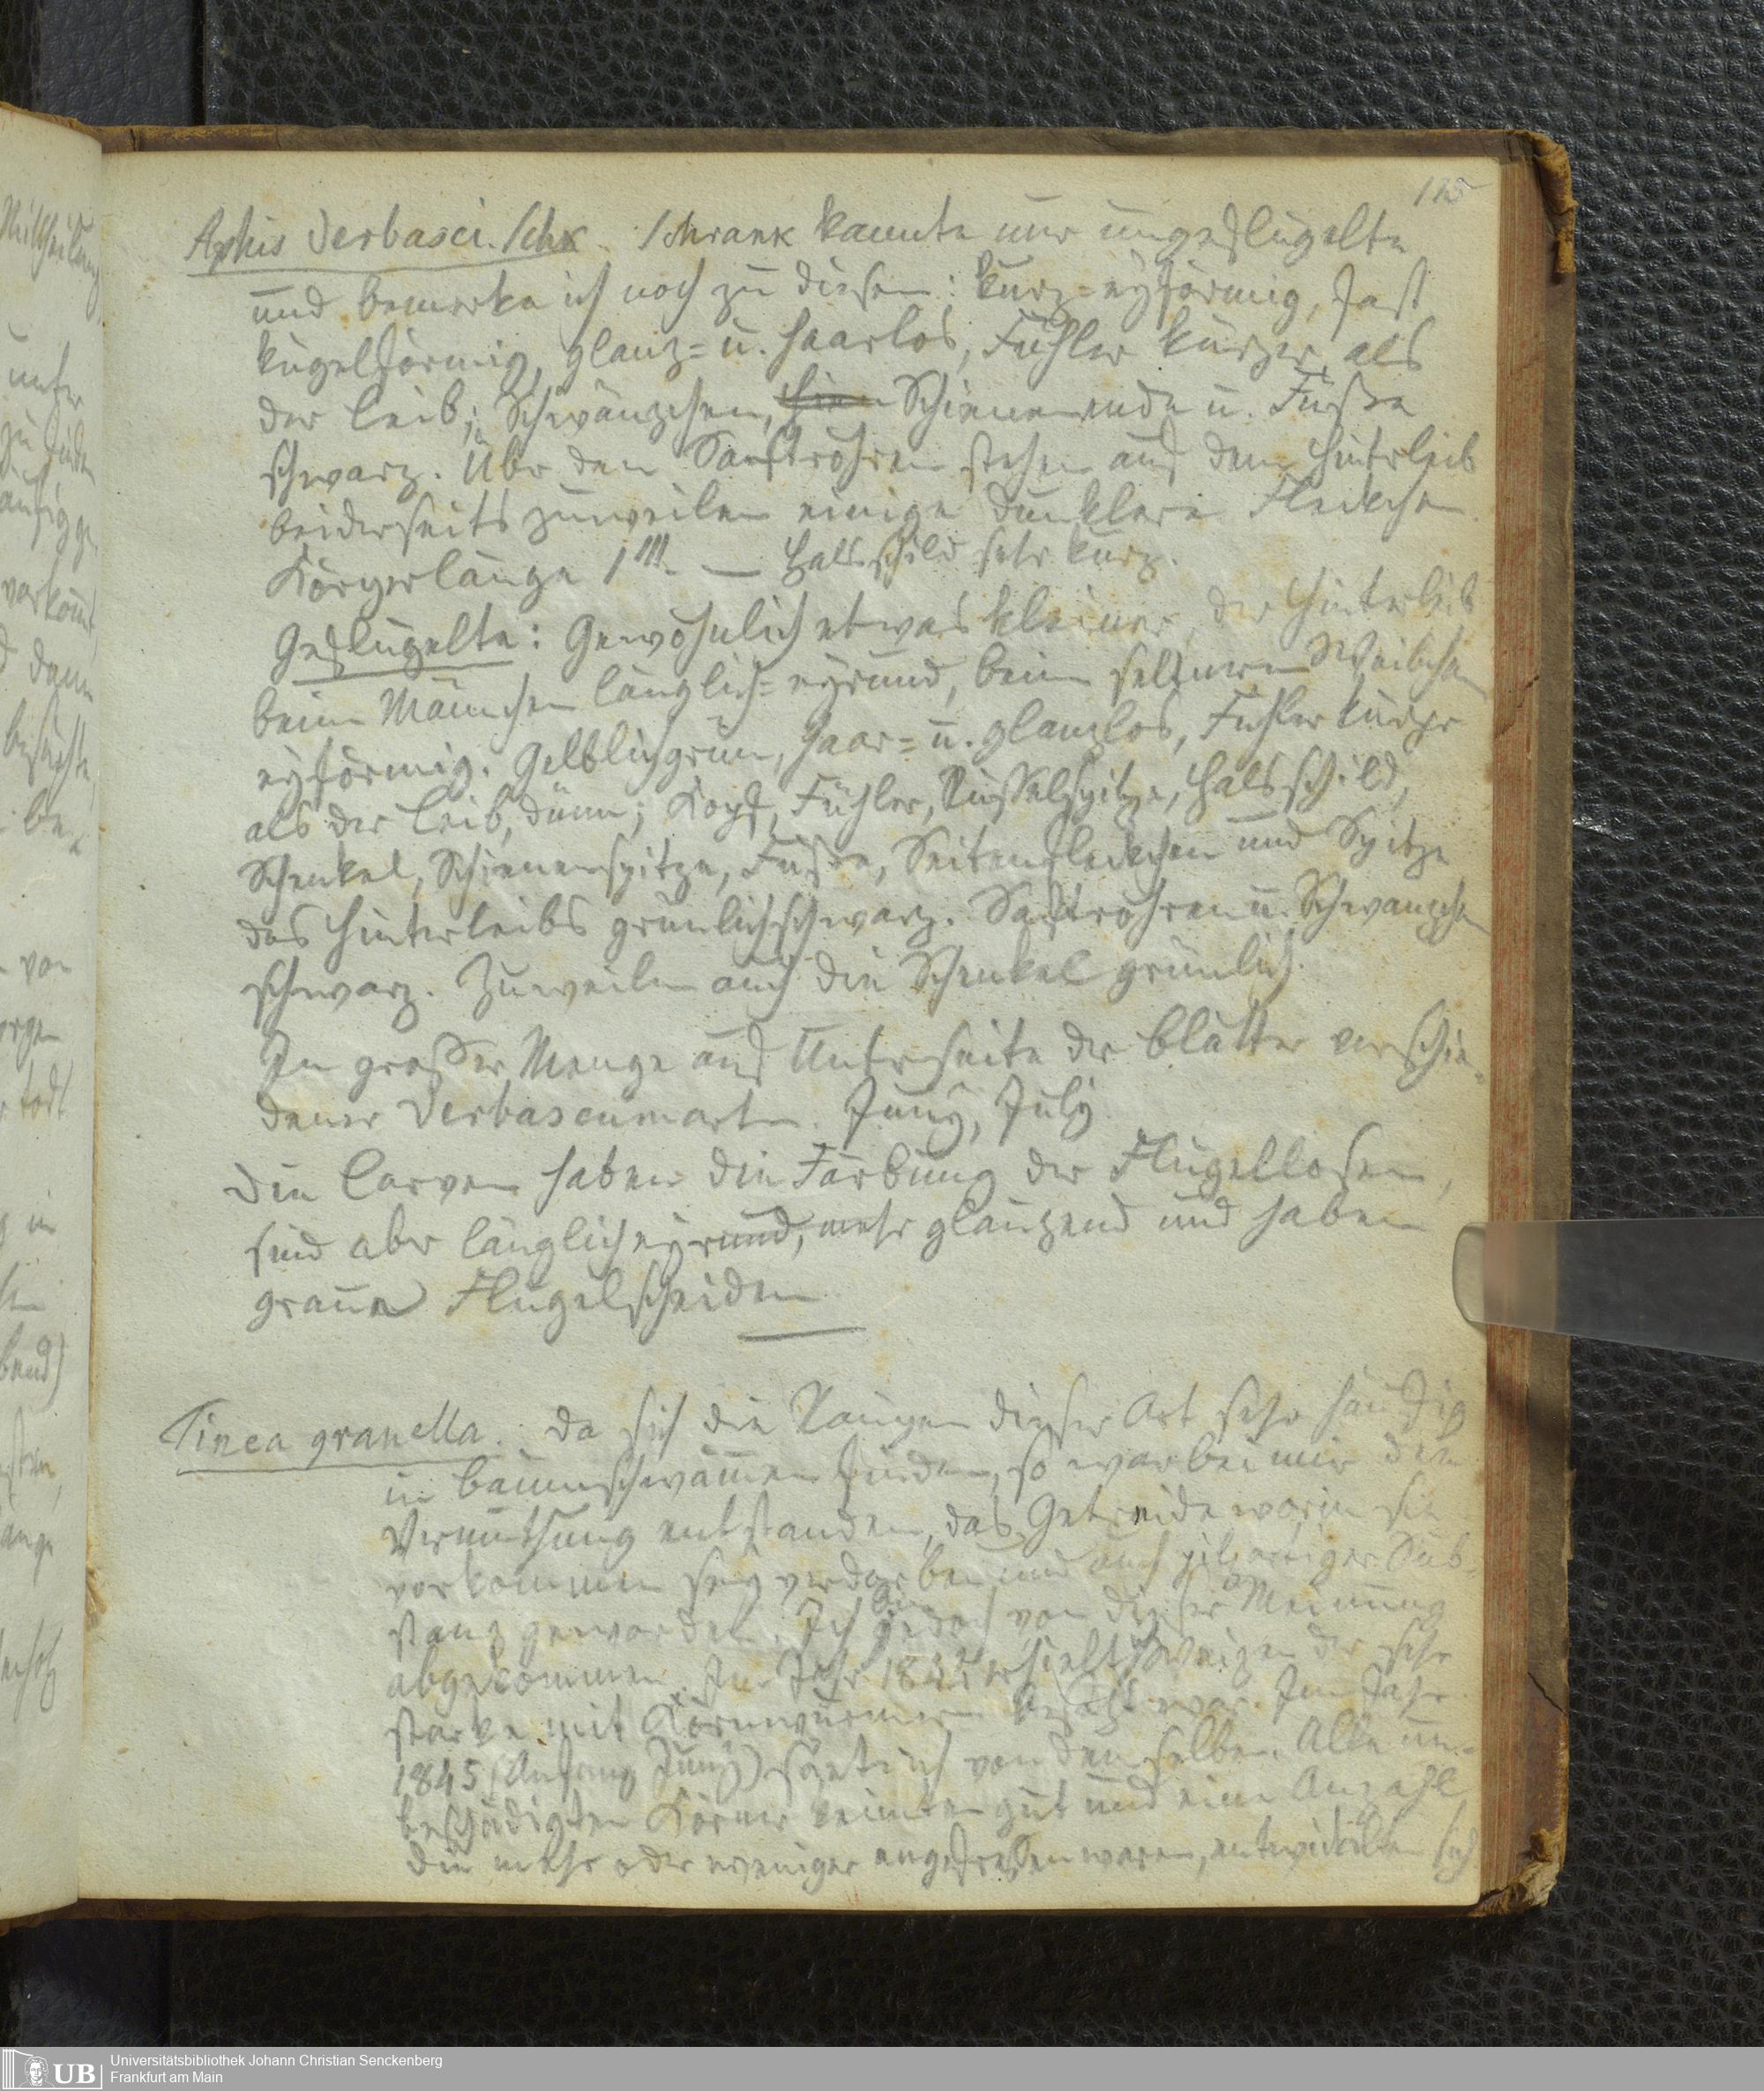 115
Aphis Verbasci. Schk. Schrank kannte nur ungeflügelte
und bemerke ich noch zu diesen: kurz=eyförmig, fast
kugelförmig, glanz= u. haarlos, Fühler kürzer als
der Leib; Schwänzchen, Schienenende u. Füße
schwarz. Über den Saftröhren stehen auf dem Hinterleib
beiderseits zuweilen einige dunklere Fleckchen
Körperlänge 1'''. — Halsschild sehr kurz.
Geflügelte: Gewöhnlich etwas kleiner, der Hinterleib
beim Mänchen länglich=eyrund, beim seltnern Weibchen
eyförmig. Gelblichgrün, haar= u. glanzlos, Fühler kürzer
als der Leib, dünn; Kopf, Fühler, Rüsselspitze, Halsschild,
Schenkel, Schienenspitze, Füße, Seitenfleckchen und Spitze
des Hinterleibs grünlichschwarz. Saftröhren u. Schwänzchen
schwarz. Zuweilen auch die Schenkel grünlich.
In großer Menge auf Unterseite der Blätter verschie=
dener Verbascumarten. Juny, July
Die Larven haben die Färbung der Flügellosen,
sind aber länglicheyrund, mehr glänzend und haben
graue Flügelscheiden
Tinea granella. Da sich die Raupen dieser Art sehr häufig
in Baumschwämen finden, so war bei mir die
Vermuthung entstanden, das Getreide worin sie
vorkommen sey verdorben und auch pilzartiger Sub=
stanz geworden. Ich bin jedoch von dieser Meinung
abgekommen. Im Jahr erhielt ich Weizen der sehr
starke mit Kornwürmern besetzt war. Im Jahr
1845 (Anfang Juny) säete ich von demselben. Alle un=
beschädigten Körner keimten gut und eine Anzahl
die mehr oder weniger angefressen waren, entwickelten sich